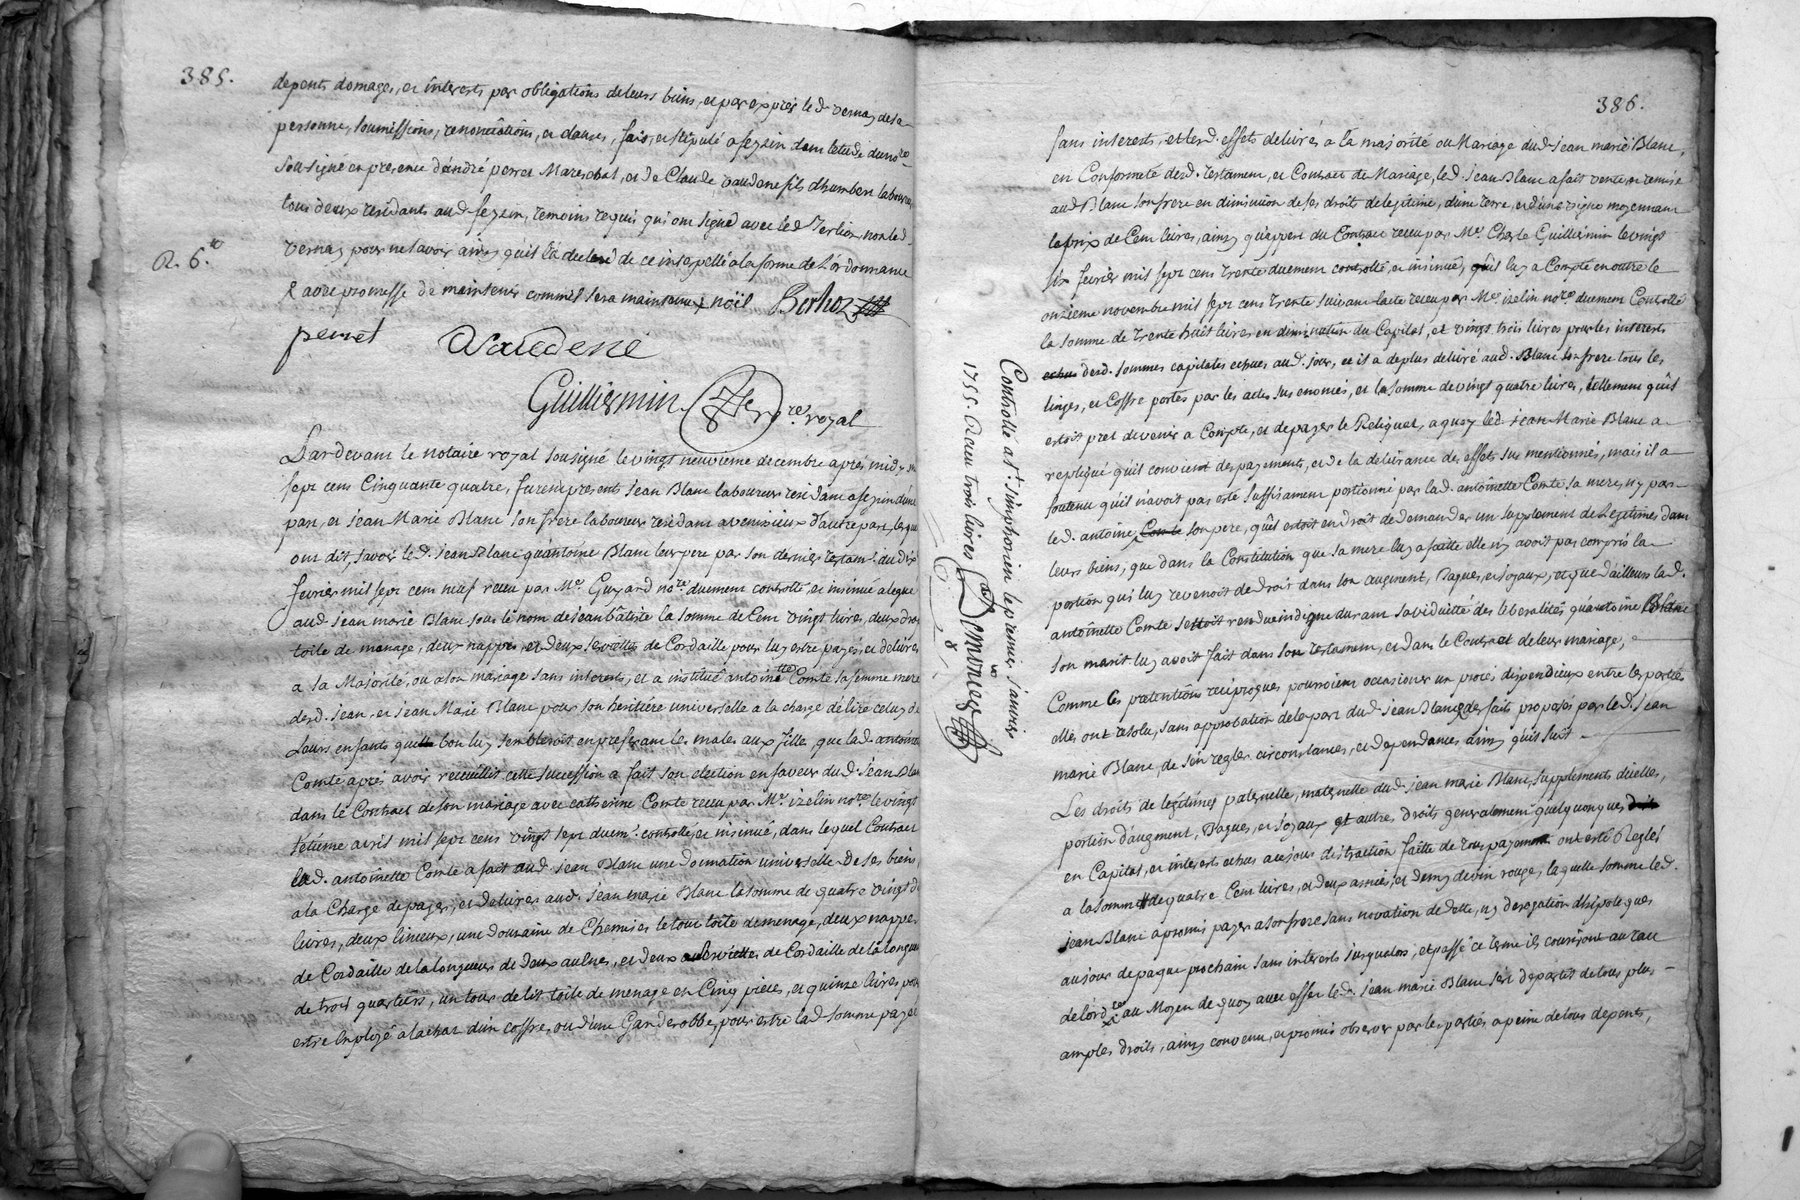 385.
depents domages, et interests par obligations de leurs biens, et par exprés led. vernay de sa
personne, soumissions, renonciations, et clauses, fait, et stipulé a feyzin dans letude du no.re
soussigné en presence d'andré perret Mareschal, et de Claude vaudene fils d'humbert laboureur
tous deux residants aud. feyzin, temoins requis qui ont signé avec led. non led.
vernay pour ne savoir ainsy quil l'a declaré de ce interpellé a la forme de l'ordonnance
R. 6.to
& avec promesse de maintenir comm'il sera maintenu noël Berlioz
perret
Vaudene
Guilliermin no.re royal
Pardevant le notaire royal soussigné le vingt neuvieme decembre aprés midy mil
sept cens Cinquante quatre, furent presents Jean Blanc laboureur residant a feyzin d'une
part, et Jean Marie Blanc son frere laboureur residant a venissieux d'autre part, lesquels
ont dit, savoir led. Jean Blanc qu'antoine Blanc leur pere par son dernier testam.t du dix
fevrier mil sept cens neuf receu par M.e Guyard no.re duement controllé, et insinué a legué
aud. Jean marie Blanc sous le nom de Jean bâtiste la somme de Cent vingt livres, deux draps
toile de menage, deux nappes et deux serviettes de Cordaille pour luy estre payés, et delivrés
a sa Majorité, ou a son mariage sans interests, et a institué antoinette Comte sa femme mere
desd. Jean, et Jean Marie Blanc pour son heritiére universelle a la charge d'elire celuy de
leurs enfants que bon luy sembleroit en preferant les males aux filles, que lad. antoinette
Comte aprés avoir recueillit cette succession a fait son election en faveur dud. Jean Blanc
dans le Contract de son mariage avec catherine Comte receu par M.e izelin no.re le vingt
setieme avril mil sept cens vingt sept duem.t controllé, et insinué, dans lequel Contract
lad. antoinette Comte a fait aud. Jean Blanc une donnation universelle de ses biens
a la Charge de payer, et delivrer aud. Jean marie Blanc la somme de quatre vingt dix
livres, deux linceux, une douzaine de Chemises le tout toile de menage, deux nappes
de Cordaille de la longueur de deux aulnes, et deux serviettes de Cordaille de la longueur
de trois quartiers, un tour de lit toile de menage en Cinq pieces, et quinze livres pour
estre employé a l'achat d'un coffre, ou d'une Garderobbe, pour estre lad. somme payée
Controllé a S.t Simphorien le premier Janvier
1755. Receu trois livres
Demonies
386.
sans interests, et lesd. effets delivrés a la majorité ou Mariage dud. Jean marie Blanc,
en Conformité desd. testament, et Contract de Mariage, led. Jean Blanc a fait vente, et remise
aud. Blanc son frere en diminution de ses droit de legitime, d'une terre, et d'une vigne moyennant
le prix de Cent livres, ainsy qu'appert du Contract receu par M.e Charle Guilliermin le vingt
six fevrier mil sept cens trente duement controllé, et insinué, qu'il luy a Compté en outre le
onzieme novembre mil sept cens trente suivant l'acte receu par M.e izelin no.re duement Controllé
la somme de trente huit livres en diminution du Capital, et vingt trois livres pour les interests
echus desd. sommes capitales echues aud. jour, et il a de plus delivré aud. Blanc son frere tous les
linges, et Coffre portés par les actes sus enoncés, et la somme de vingt quatre livres, tellement qu'il
estoit pret de venir a Compte, et de payer le Reliquat, a quoy led. Jean Marie Blanc a
repliqué qu'il convient des payements, et de la delivrance des effets sus mentionnés, mais il a
soutenu qu'il n'avoit pas esté suffisament portionné par lad. antoinette Comte sa mere, ny par
led. antoine Comte son pere, qu'il estoit en droit de demander un supplement de Legitimes dans
leurs biens, que dans la Constitution que sa mere luy a faitte elle n'y avoit pas compris la
portion qui luy revenoit de droit dans son augment, Bagues, et Joyaux, et que d'ailleurs lad.
antoinette Comte s'estoit rendue indigne durant sa viduitté des liberalités qu'antoine Blanc
son marit luy avoit fait dans son testament, et dans le Contract de leur mariage,
Comme les pretentions reciproques pourroient occasioner un procés dispendieux entre les parties
elles ont resolu, sans approbation de la part dud. Jean Blanc des faits proposés par led. Jean
marie Blanc, de s'en regler circonstances, et dependances ainsy quil suit
Les droits de legitimes paternelle, maternelle dud. Jean marie Blanc, supplements d'icelles,
portion d'augment, Bagues, et Joyaux et autres droits generalement quelquonques
en Capital, et interests echus a ce jour distraction faitte de tous payements ont esté Reglés
a la somme de quatre Cent livres, et deux annés, et demy de vin rouge, laquelle somme led.
Jean Blanc a promis payer a son frere sans novation de dette, ny derogation d'hipoteques
au jour de paque prochain sans interests jusqu'alors, et passé ce terme ils courront au taux
de l'ord.ce au Moyen de quoy avec effet led. Jean marie Blanc s'est departit de tous plus
amples droits, ainsy convenu, et promis observer par les parties a peine de tous depents,